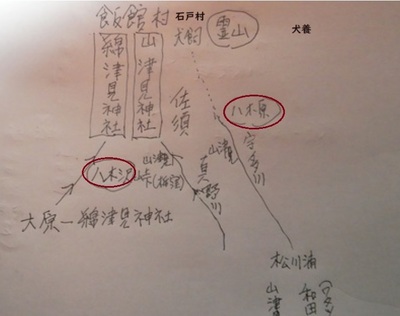 飯館村
石戸村
犬飼
霊山
犬養
綿津見神社
山津見神社
佐須
八木原
宇多川
山津見
真野川
八木沢
峠
大原一綿津見神社
松川浦
和田
山津